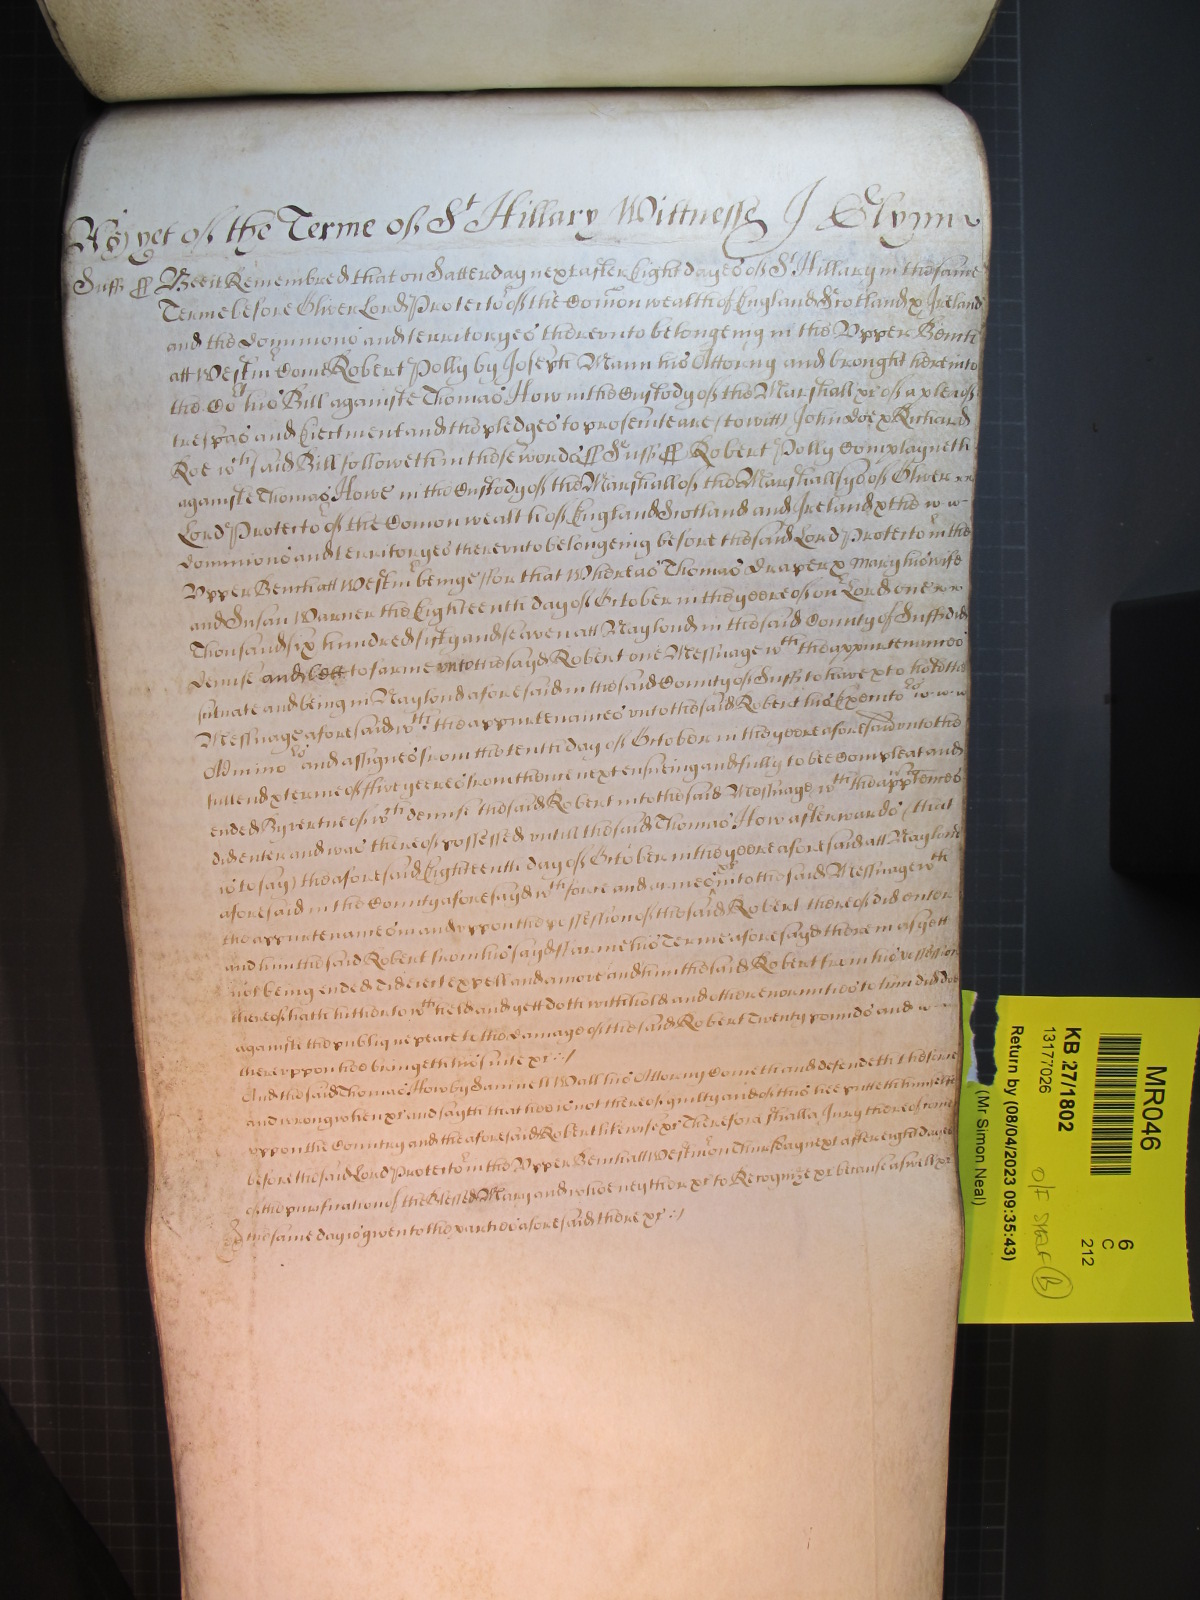 As yet of the Terme of St Hillary Wittnesse J Glynn
Suff ss Bee it Remembred that on Satterday next after Eight dayes of St Hillary in this same
Terme before Oliver Lord Protector of the Comon wealth of England Scotland & Ireland
and the Dominions and territoryes therevnto belongeing in the Vpper Bench
att Westm Come Robert Polly by Joseph Mann his Attorny and brought here into
the Co his Bill againste Thomas How in the Custody of the Marshall &c of a plea of
trespas and Eiectment and the pledges to prosecute are (to witt) John Doe & Richard
Roe wch said Bill followeth in these words ss Suff ss Robert Polly Complayneth
againste Thomas Howe in the Custody of the Marshall of the Marshallsyes of Oliver
Lord Protector of the Comon wealth of England Scotland and Ireland & the
dominions and territoryes therevnto belongeing before the said Lord Protector in the
Vpper Bench att Westm beinge ffor that Whereas Thomas Draper & Mary his wife
and Susan Warner the Eighteenth day of October in the yeere of our Lord one
Thousand six hundred fifty and seaven att Nayland in the said County of Suff did
demise and lett to farme vnto the sayd Robert one Messuage wth the appurtenances
situate and being in Nayland aforesaid in the said County of Suff to have & to hold the
Messuage aforesaid wth the appurtenances vnto the said Robert his Executors
Adminors and assignes from the tenth day of October in the yeere aforesaid vnto the
full end & terme of ffive yeeres from thence next ensueing and fully to bee Compleat and
ended By vertue of wch demise the said Robert into the said Messuage wth the appurtences
did enter and was thereof possessed vntill the said Thomas How afterwards (that
is to say) the aforesaid Eighteenth day of October in the yeere aforesaid att Nayland
aforesaid in the County aforesayd wth force and armes &c into the said Messuage wth
the appurtenances in and vppon the possession of the said Robert thereof did enter
and him the said Robert from his sayd ffarme his Terme aforesayd therein as yett
not being ended did eiect expell and amove and him the said Robert from his possession
thereof hath hitherto wth held and yett doth withhold and other enormities to him did doe
againste the publique peace to the damage of the said Robert Twenty pounds and
therevppon hee bringeth this suite &c
And the said Thomas How by Samuell Wall his Attorny Cometh and defendeth the force
and wrong when &c and sayth that hee is not thereof guilty and of this hee putteth himselfe
vppon the Country and the aforesaid Robert likewise &c Therefore shall a Jury thereof come
before the said Lord Protector in the Vpper Bench att Westm on Thursday next after eight dayes
of the purification of the blessed Mary and whoe neyther &c to Recognize &c because aswell &c
the same day is given to the parties aforesaid there &c
MR046
6
C
212
KB 27/1802
13177026
O/F SHELF (B)
Return by (08/04/2023 09:35:43)
(Mr Simon Neal)